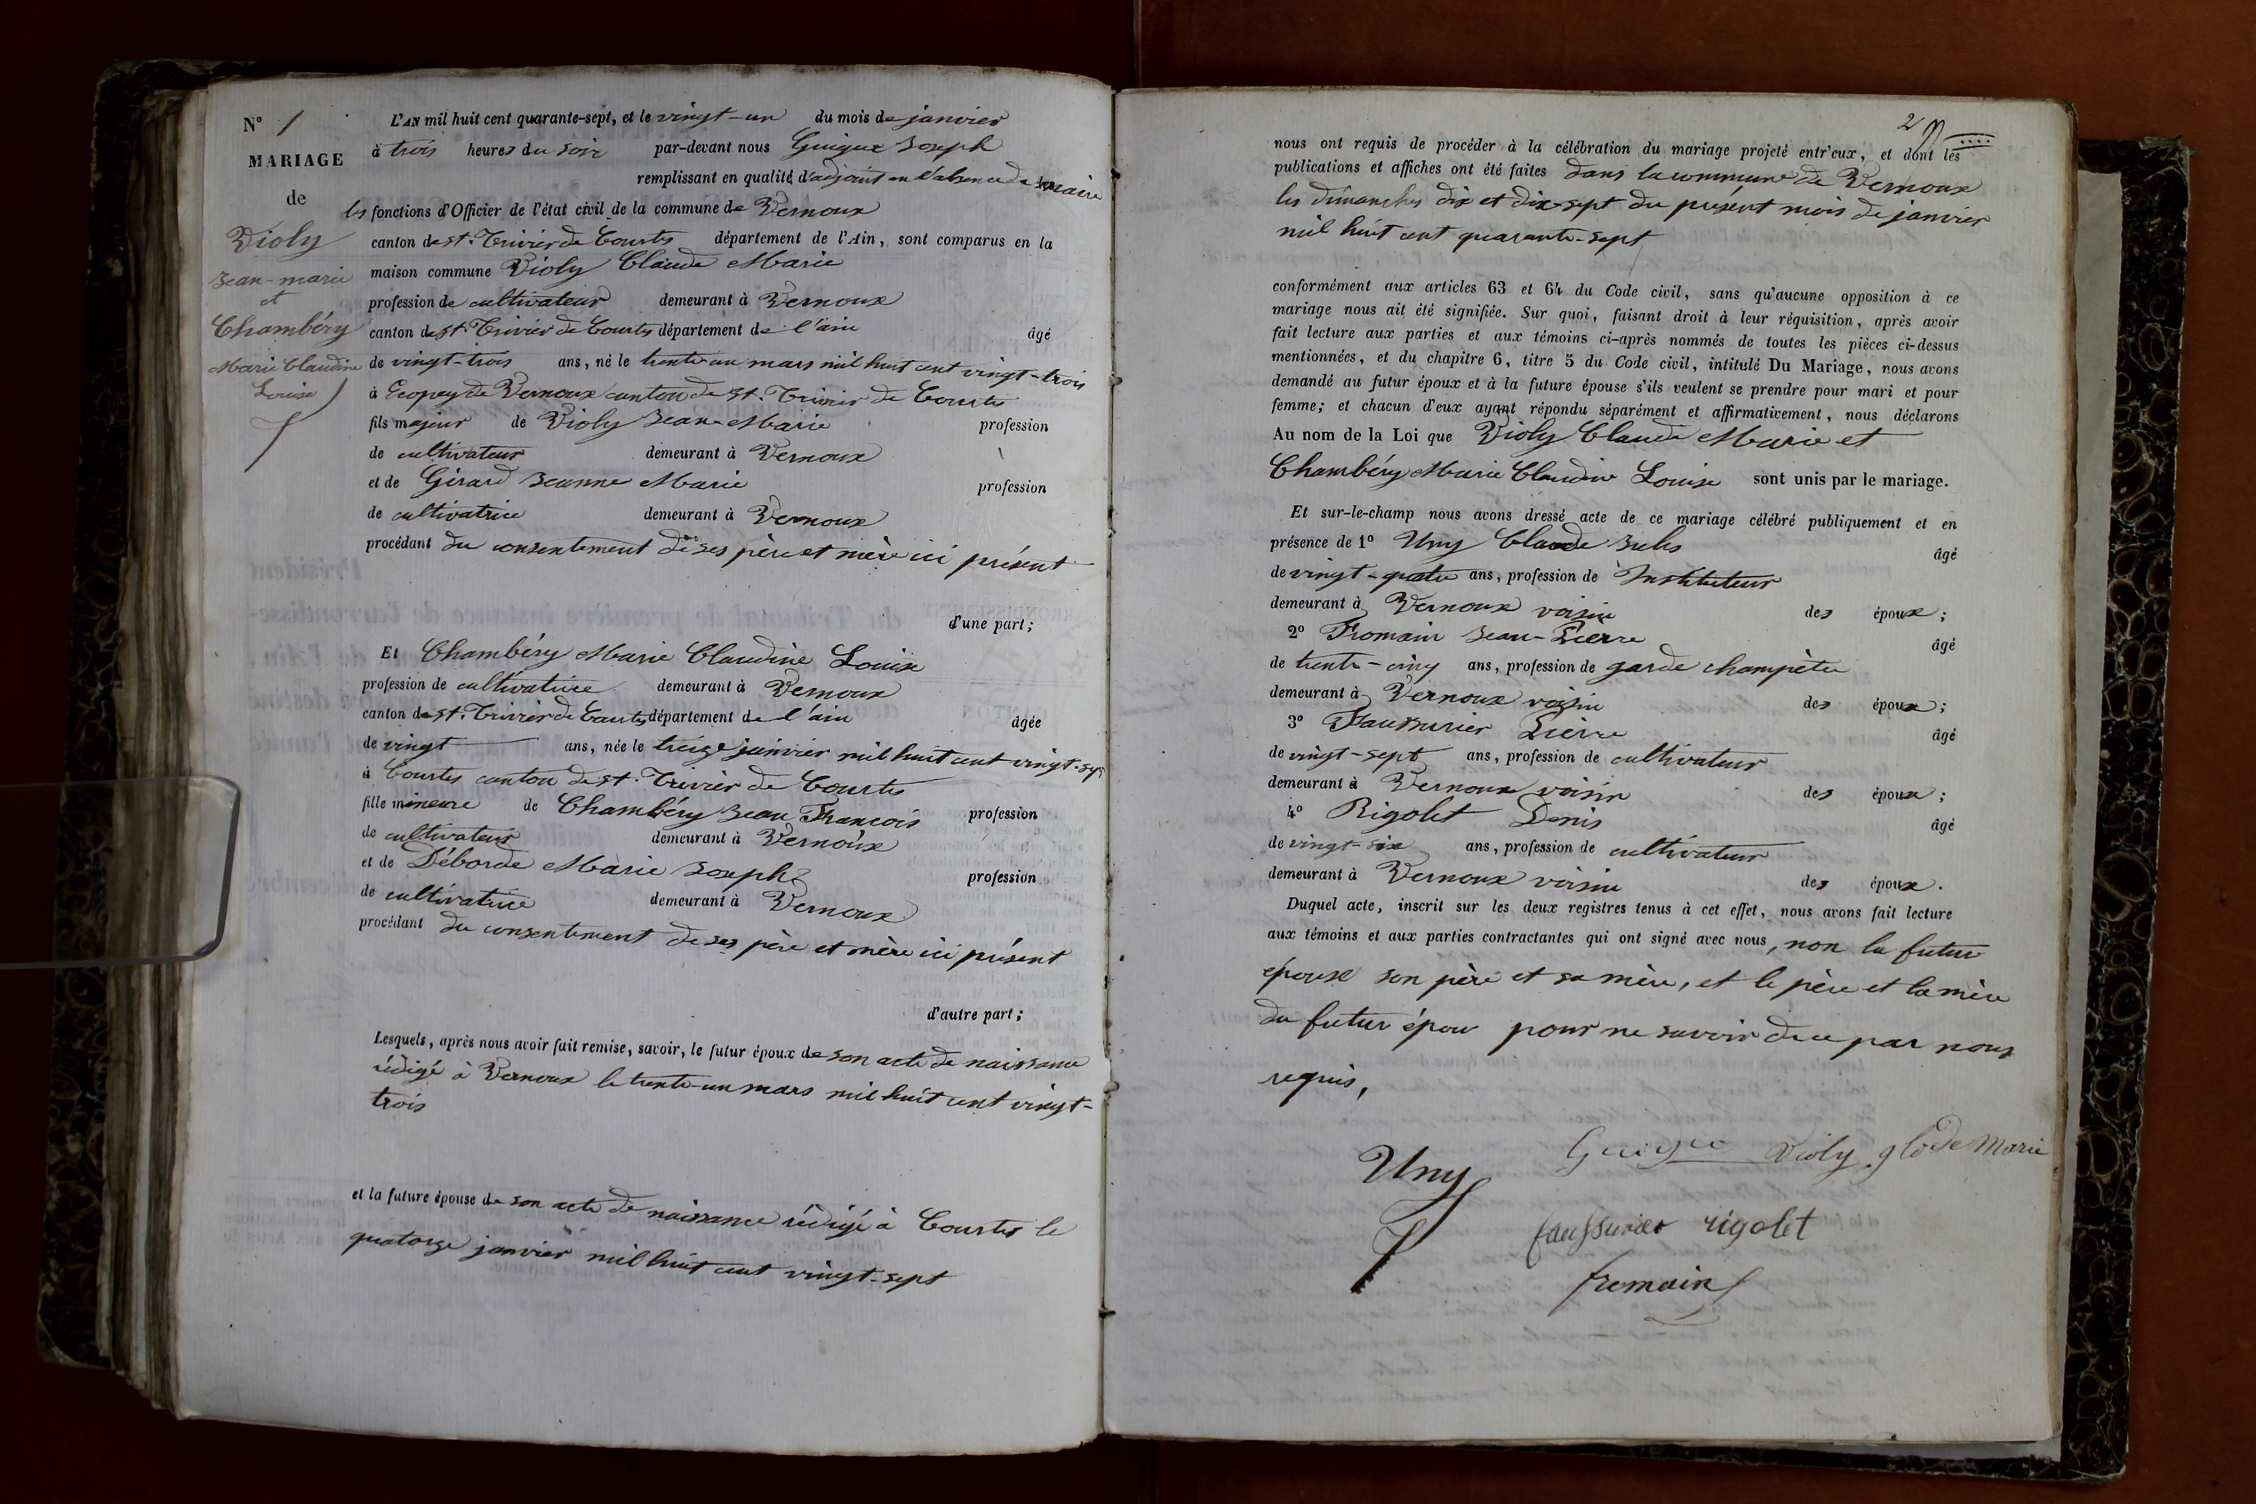 N° 1
MARIAGE
de
Violy
Jean-marie
et
Chambéry
Marie Claudine
Louise
L'AN mil huit cent quarante-sept, et le vingt-un du mois de janvier
à trois heures du soir par-devant nous Guigue Joseph
remplissant en qualité d'adjoint en l'absence de maire
les fonctions d'Officier de l'état civil de la commune de Vernoux
canton de st. Trivier de Courtes département de l'Ain, sont comparus en la
maison commune Violy Claude Marie
profession de cultivateur demeurant à Vernoux
canton de st. Trivier de Courtes département de l'ain âgé
de vingt-trois ans, né le trente un mars mil huit cent vingt-trois
à Ecopey de Vernoux canton de st. Trivier de Courtes
fils majeur de Violy Jean Marie profession
de cultivateur demeurant à Vernoux
et de Girard Jeanne Marie profession
de cultivatrice demeurant à Vernoux
procédant du consentement de ses père et mère ici présent
d'une part;
Et Chambéry Marie Claudine Louise
profession de cultivatrice demeurant à Vernoux
canton de st. Trivier de Courtes département de l'ain âgée
de vingt ans, née le treize janvier mil huit cent vingt-sept
à Courtes canton de st. Trivier de Courtes
fille mineure de Chambéry Jean François profession
de cultivateur demeurant à Vernoux
et de Déborde Marie Joseph profession
de cultivatrice demeurant à Vernoux
procédant du consentement de ses père et mère ici présent
d'autre part;
Lesquels, après nous avoir fait remise, savoir, le futur époux de son acte de naissance
rédigé à Vernoux le trente-un mars mil huit cent vingt-
trois
et la future épouse de son acte de naissance rédigé à Courtes le
quatorze janvier mil huit cent vingt-sept
2
nous ont requis de procéder à la célébration du mariage projeté entr'eux, et dont les
publications et affiches ont été faites dans la commune de Vernoux
les dimanches dix et dix-sept du présent mois de janvier
mil huit cent quarante-sept
conformément aux articles 63 et 64 du Code civil, sans qu'aucune opposition à ce
mariage nous ait été signifiée. Sur quoi, faisant droit à leur réquisition, après avoir
fait lecture aux parties et aux témoins ci-après nommés de toutes les pièces ci-dessus
mentionnées, et du chapitre 6, titre 5 du Code civil, intitulé Du Mariage, nous avons
demandé au futur époux et à la future épouse s'ils veulent se prendre pour mari et pour
femme; et chacun d'eux ayant répondu séparément et affirmativement, nous déclarons
Au nom de la Loi que Violy Claude Marie et
Chambéry Marie Claudine Louise sont unis par le mariage.
Et sur-le-champ nous avons dressé acte de ce mariage célébré publiquement et en
présence de 1° Uny Claude Jules âgé
de vingt-quatre ans, profession de Instituteur
demeurant à Vernoux voisin des époux;
2° Fromain Jean-Pierre âgé
de trente-cinq ans, profession de garde champètre
demeurant à Vernoux voisin des époux;
3° Faussurier Pierre âgé
de vingt-sept ans, profession de cultivateur
demeurant à Vernoux voisin des époux;
4° Rigolet Denis âgé
de vingt-six ans, profession de cultivateur
demeurant à Vernoux voisin des époux.
Duquel acte, inscrit sur les deux registres tenus à cet effet, nous avons fait lecture
aux témoins et aux parties contractantes qui ont signé avec nous, non la future
épouse son père et sa mère, et le père et la mère
du futur épou pour ne savoir de ce par nous
requis,
Uny Guigue Violy glode Marie
faussurier rigolet
fromain